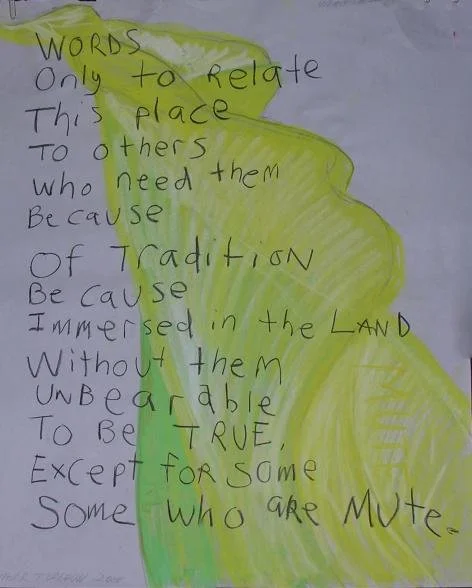 WORDS
Only to Relate
This place
To others
who need them
Because
Of Tradition
Because
Immersed in the LAND
Without them
UNBearable
To Be TRUE,
Except for some
Some who are Mute.
2008